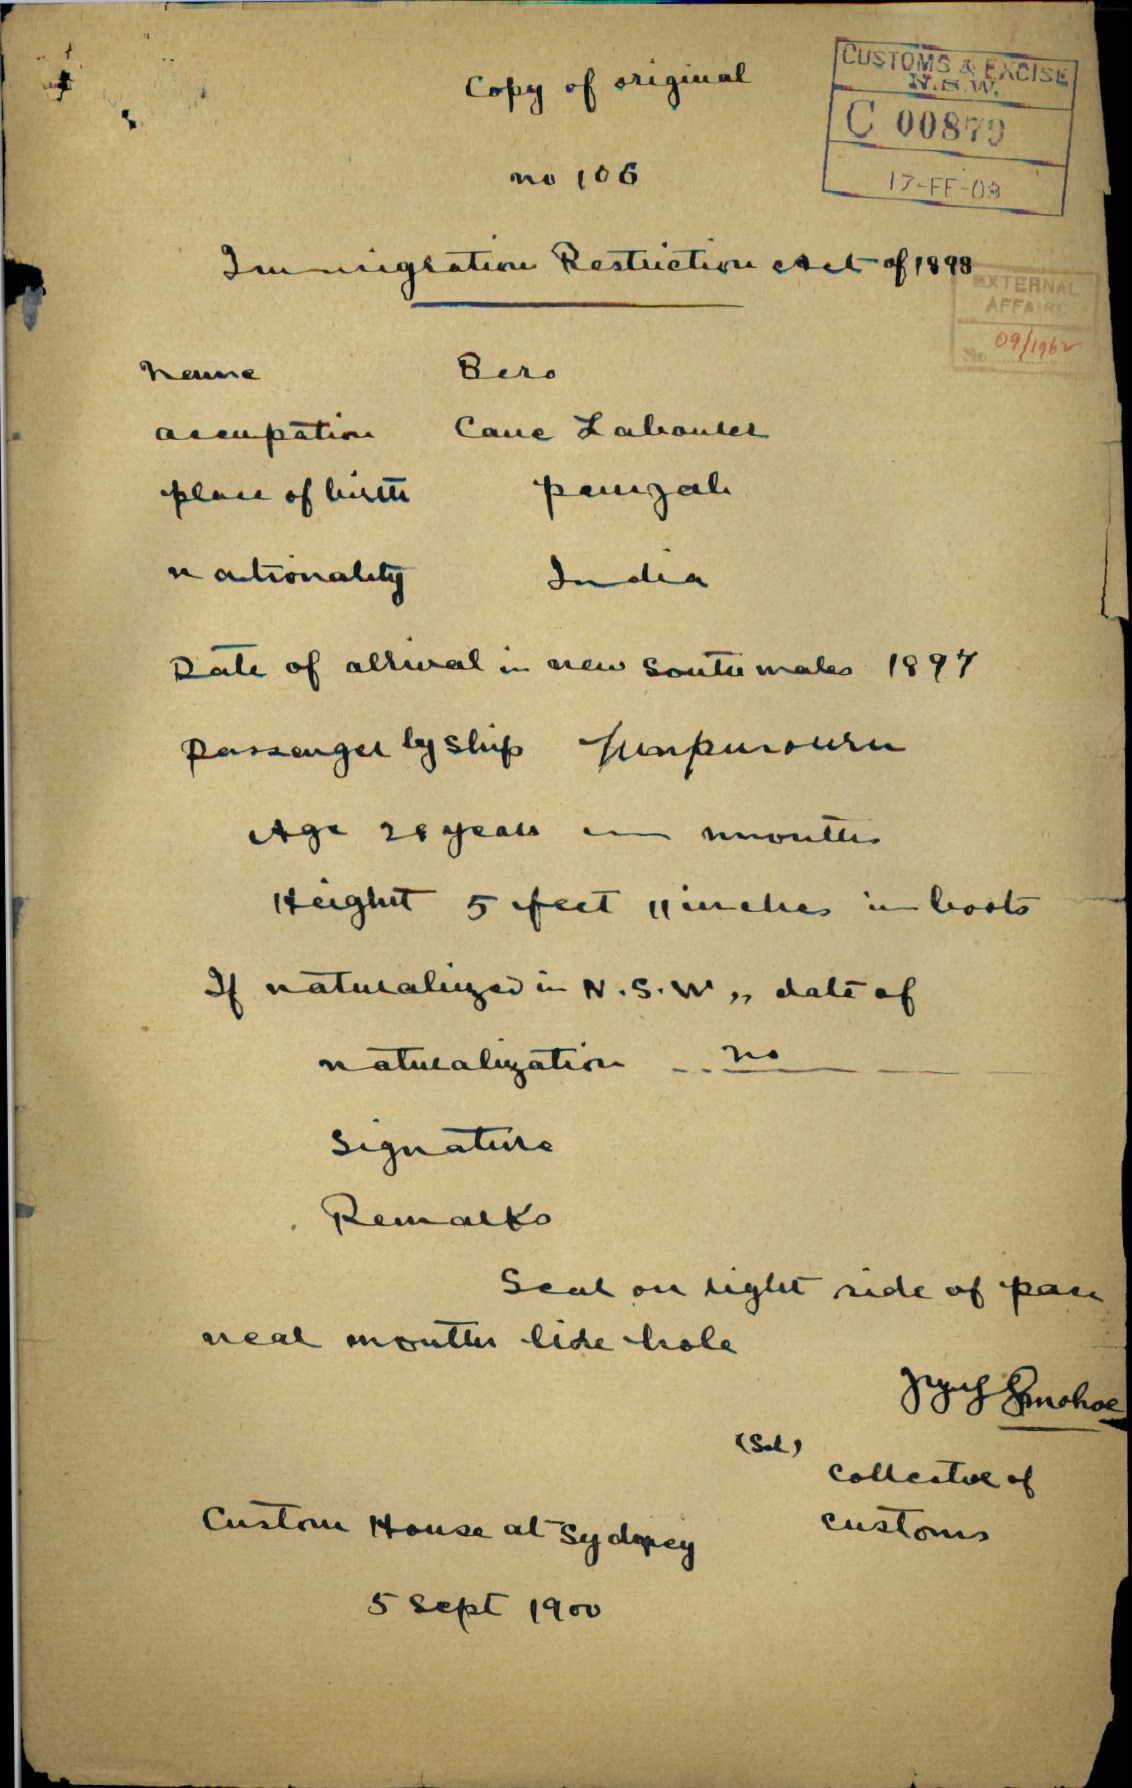 Copy of original
CUSTOMS & EXCISE
N.S.W.
C 00879
17-FE-09
no 106
Immigration Restriction Act of 1898
EXTERNAL
AFFAIRS
No 09/1962
Name Bero
occupation Cane Labourer
place of birth punjab
nationality India
Date of arrival in new south wales 1897
passenger by ship
Age 28 years months
Height 5 feet 11 inches in boots
If naturalized in N.S.W ,, date of
naturalization no
Signature
Remarks
Scar on right side of face
near mouth like hole
(Sd)
collector of
customs
Custom House at Sydney
5 Sept 1900